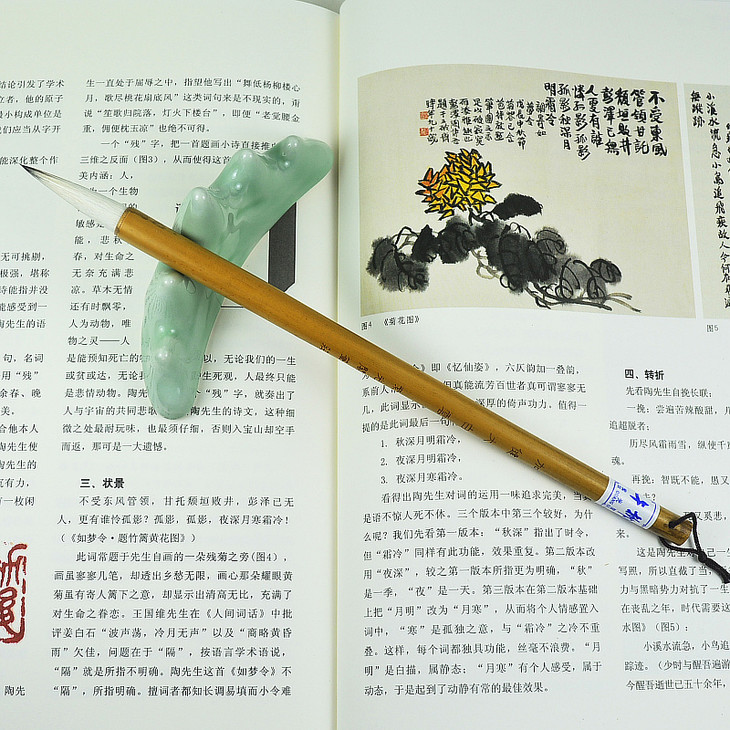 结论引发了学术
立者，他的原子
最小构成单位是
我们应当从字开
能深化整个作
无可挑剔，
极强，堪称
诗能指并没
能感受到一
陶先生的语
句，名词
用“残”
余春、晚
美。
合他本人
陶先生使
克有力，
有一枚闲
陶先
生一直处于屈辱之中，指望他写出“舞低杨柳楼心
月，歌尽桃花扇底风”这类词句来是不现实的，甭
说“笙歌归院落，灯火下楼台”，即便“老觉腰金
重，慵便枕玉凉”也绝不可得。
一个“残”字，把一首题画小诗直接推
三维之反面（图3），从而使得这首
美内涵：人，
为一个生物
敏感
能，悲秋
春，对生命之
无奈充满悲
凉。草木无情
还有时飘零，
人为动物，唯
物之灵——人
是能预知死亡的
，无论我们的一生
或贫或达，无论
生死观，人最终只能
是悲情动物。陶
个“残”字，就奏出了
人与宇宙的共同悲歌
陶先生的诗文，这种细
微之处最耐玩味，也最须仔细，否则入宝山却空手
而返，那可是一大遗憾。
三、状景
不受东风管领，甘托颓垣败井，彭泽已无
人，更有谁怜孤影？孤影，孤影，夜深月寒霜冷！
（《如梦令·题竹篱黄花图》）
此词常题于先生自画的一朵残菊之旁(图4)，
画虽寥寥几笔，却透出乡愁无限，画心那朵耀眼黄
菊虽有寄人篱下之意，却显示出清高无比，充满了
对生命之眷恋。王国维先生在《人间词话》中批
评姜白石“波声荡，冷月无声”以及“商略黄昏
雨”欠佳，问题在于“隔”，按语言学术语说，
“隔”就是所指不明确。陶先生这首《如梦令》不
“隔”，所指明确。擅词者都知长调易填而小令难
不受东风
管领甘托
颓垣败井
彭泽已无
人更有谁
怜孤影孤影
孤影秋深月
明霜冷
图4 《菊花图》
小溪水流急小鸟追飞疾故人今何在
无踪迹
图5
令》即《忆仙姿》，六仄韵加一叠韵，
系前人
但真能流芳百世者真可谓寥寥无
几，此词显示
深厚的倚声功力，值得一
提的是此词最后一句
1. 秋深月明霜冷，
2. 夜深月明霜冷，
3. 夜深月寒霜冷。
看得出陶先生对词的运用一味追求完美，当
是语不惊人死不休。三个版本中第三个较好，为什
么呢？我们先看第一版本：“秋深”指出了时令，
但“霜冷”同样有此功能，效果重复。第二版本改
用“夜深”，较之第一版本所指更为明确，“秋”
是一季，“夜”是一天。第三版本在第二版本基础
上把“月明”改为“月寒”，从而将个人情感置入
词中，“寒”是孤独之意，与“霜冷”之冷不重
叠。这样，每个词都独具功能，丝毫不浪费。“月
明”是白描，属静态；“月寒”有个人感受，属于
动态，于是起到了动静有常的最佳效果。
四、转折
先看陶先生自挽长联：
一挽：尝遍苦辣酸甜，
追超脱者；
历尽风霜雨雪，纵使千
魂。
再挽：智既不能，愚又
又莫悲，
这是陶先生
己一生
写照，所以直截了当，
力与黑暗势力对抗了一生
在丧乱之年，时代需要这
水图》（图5）：
小溪水流急，小鸟追
踪迹。（少时与醒吾遍游
今醒吾逝世已五十余年，